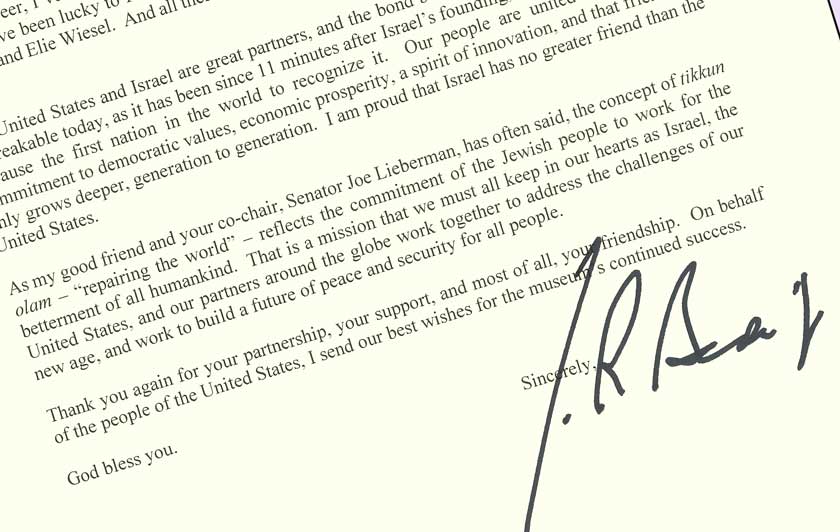 eer, I
ve been lucky to
and Elie Wiesel. And all
United States and Israel are great partners, and the bond
reakable today, as it has been since 11 minutes after Israel's founding,
ause the first nation in the world to recognize it. Our people are united
mmitment to democratic values, economic prosperity, a spirit of innovation, and that
nly grows deeper, generation to generation. I am proud that Israel has no greater friend than the
United States.
As my good friend and your co-chair, Senator Joe Lieberman, has often said, the concept of tikkun
olam – “repairing the world” – reflects the commitment of the Jewish people to work for the
betterment of all humankind. That is a mission that we must all keep in our hearts as Israel, the
United States, and our partners around the globe work together to address the challenges of our
new age, and work to build a future of peace and security for all people.
Thank you again for your partnership, your support, and most of all, your friendship. On behalf
of the people of the United States, I send our best wishes for the museum's continued success.
Sincerely,
God bless you.